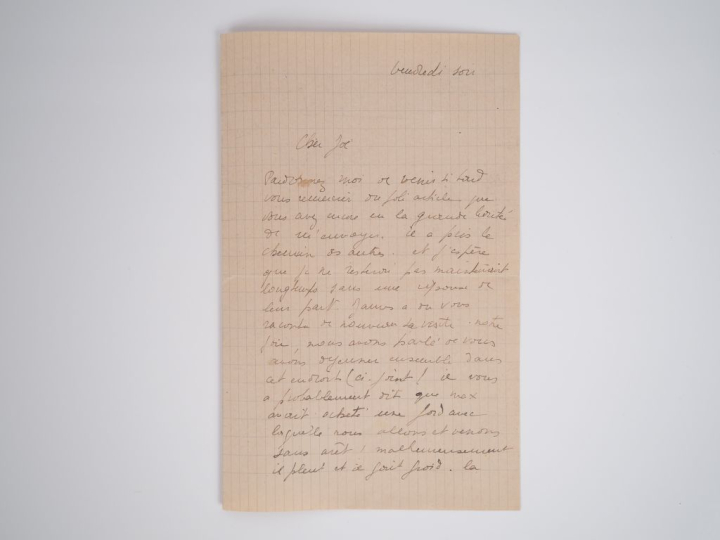 Vendredi soir
Cher Joe
Pardonnez moi de venir si tard
vous remercier du joli article que
vous avez mise en la grande bonté
de m'envoyer. il a pris le
chemin des autres. et j'espère
que je ne resterai pas maintenant
longtemps sans une réponse de
leur part. James a du vous
raconter de nouveau sa visite. notre
joie, nous avons parlé de vous
avons déjeuner ensemble dans
cet endroit (ci-joint) il vous
a probablement dit que max
avait acheté une ford avec
laquelle nous allons et venons
sans arêt! malheureusement
il pleut et il fait froid. la